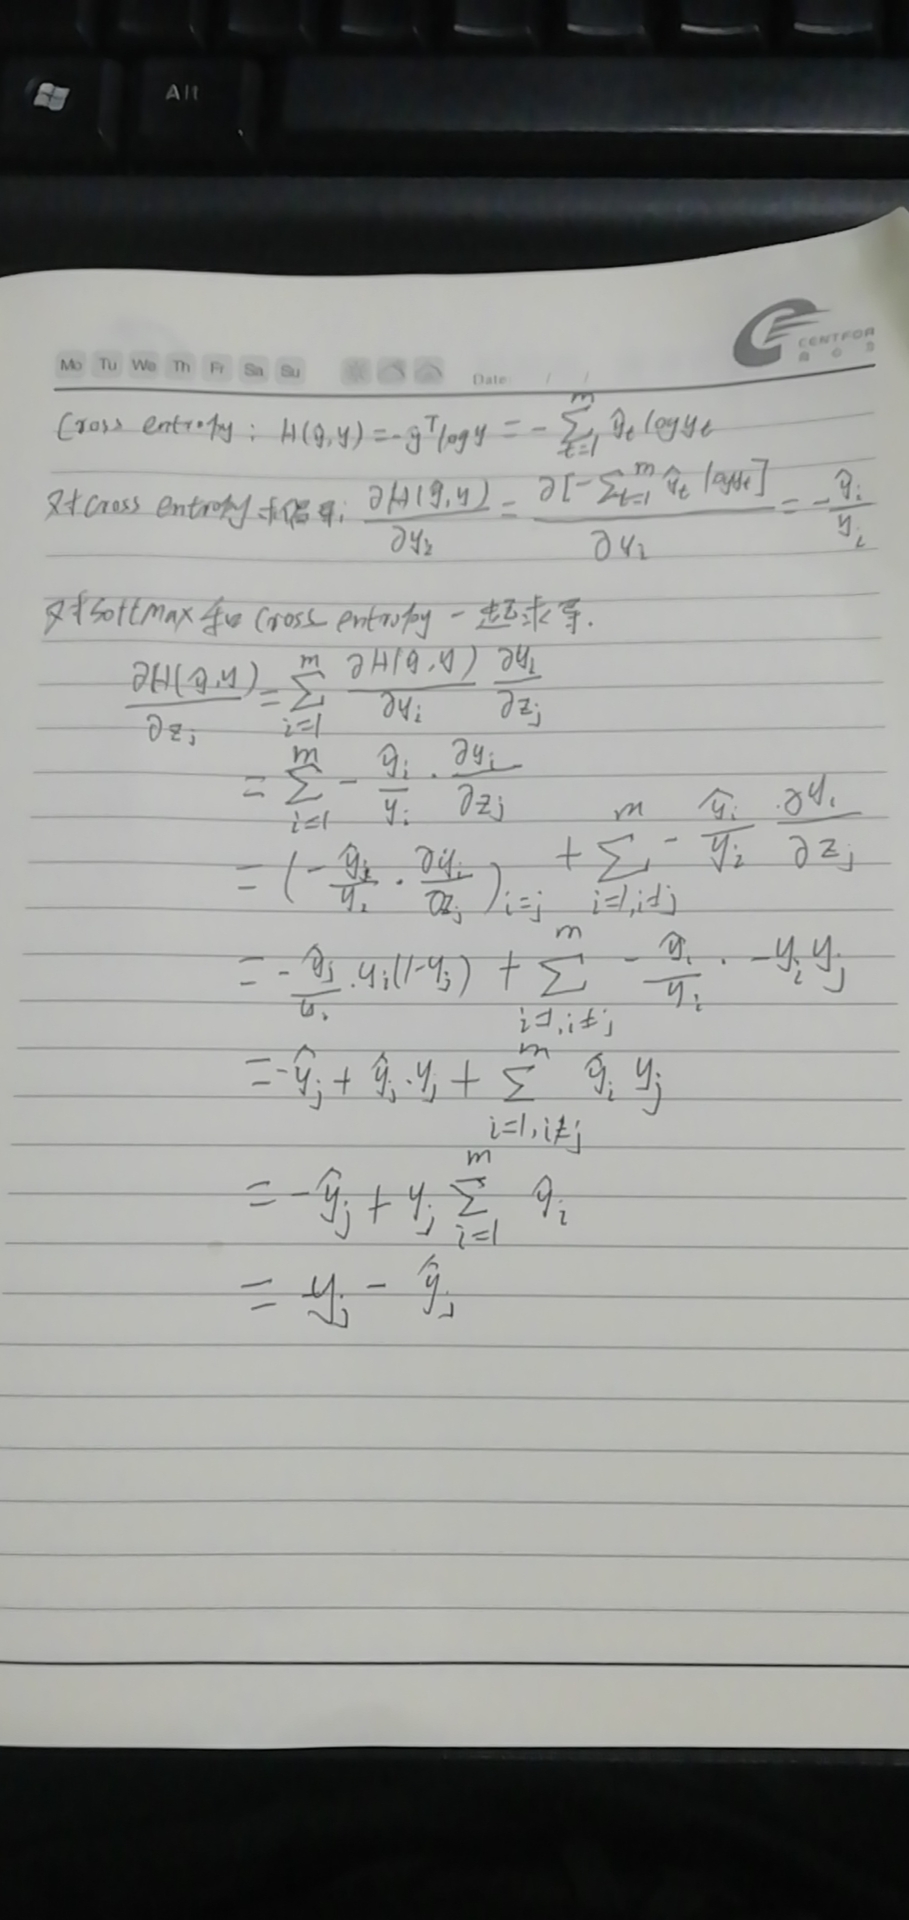 Alt
CENTFOR
Mo Tu We Th Fr Sa Su
Date / /
Cross entropy: H(ŷ,y) = -ŷᵀlog y = -∑_{t=1}^{m} ŷ_t log y_t
对Cross entropy求偏导: ∂H(ŷ,y)/∂y_i = ∂[-∑_{t=1}^{m} ŷ_t log y_t]/∂y_i = -ŷ_i/y_i
对Softmax和Cross entropy一起求导.
∂H(ŷ,y)/∂z_j = ∑_{i=1}^{m} ∂H(ŷ,y)/∂y_i ∂y_i/∂z_j
= ∑_{i=1}^{m} -ŷ_i/y_i · ∂y_i/∂z_j
= (-ŷ_i/y_i · ∂y_i/∂z_j)_{i=j} + ∑_{i=1,i≠j}^{m} -ŷ_i/y_i · ∂y_i/∂z_j
= -ŷ_j/y_i · y_i(1-y_j) + ∑_{i=1,i≠j}^{m} -ŷ_i/y_i · -y_i y_j
= -ŷ_j + ŷ_j · y_j + ∑_{i=1,i≠j}^{m} ŷ_i y_j
= -ŷ_j + y_j ∑_{i=1}^{m} ŷ_i
= y_j - ŷ_j